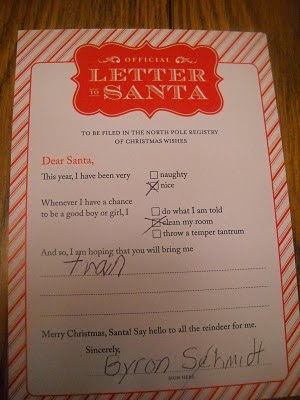 OFFICIAL
LETTER
TO SANTA
TO BE FILED IN THE NORTH POLE REGISTRY
OF CHRISTMAS WISHES
Dear Santa,
This year, I have been very naughty
nice
Whenever I have a chance
to be a good boy or girl, I do what I am told
clean my room
throw a temper tantrum
And so, I am hoping that you will bring me
train
Merry Christmas, Santa! Say hello to all the reindeer for me.
Sincerely,
Byron Schmidt
SIGN HERE